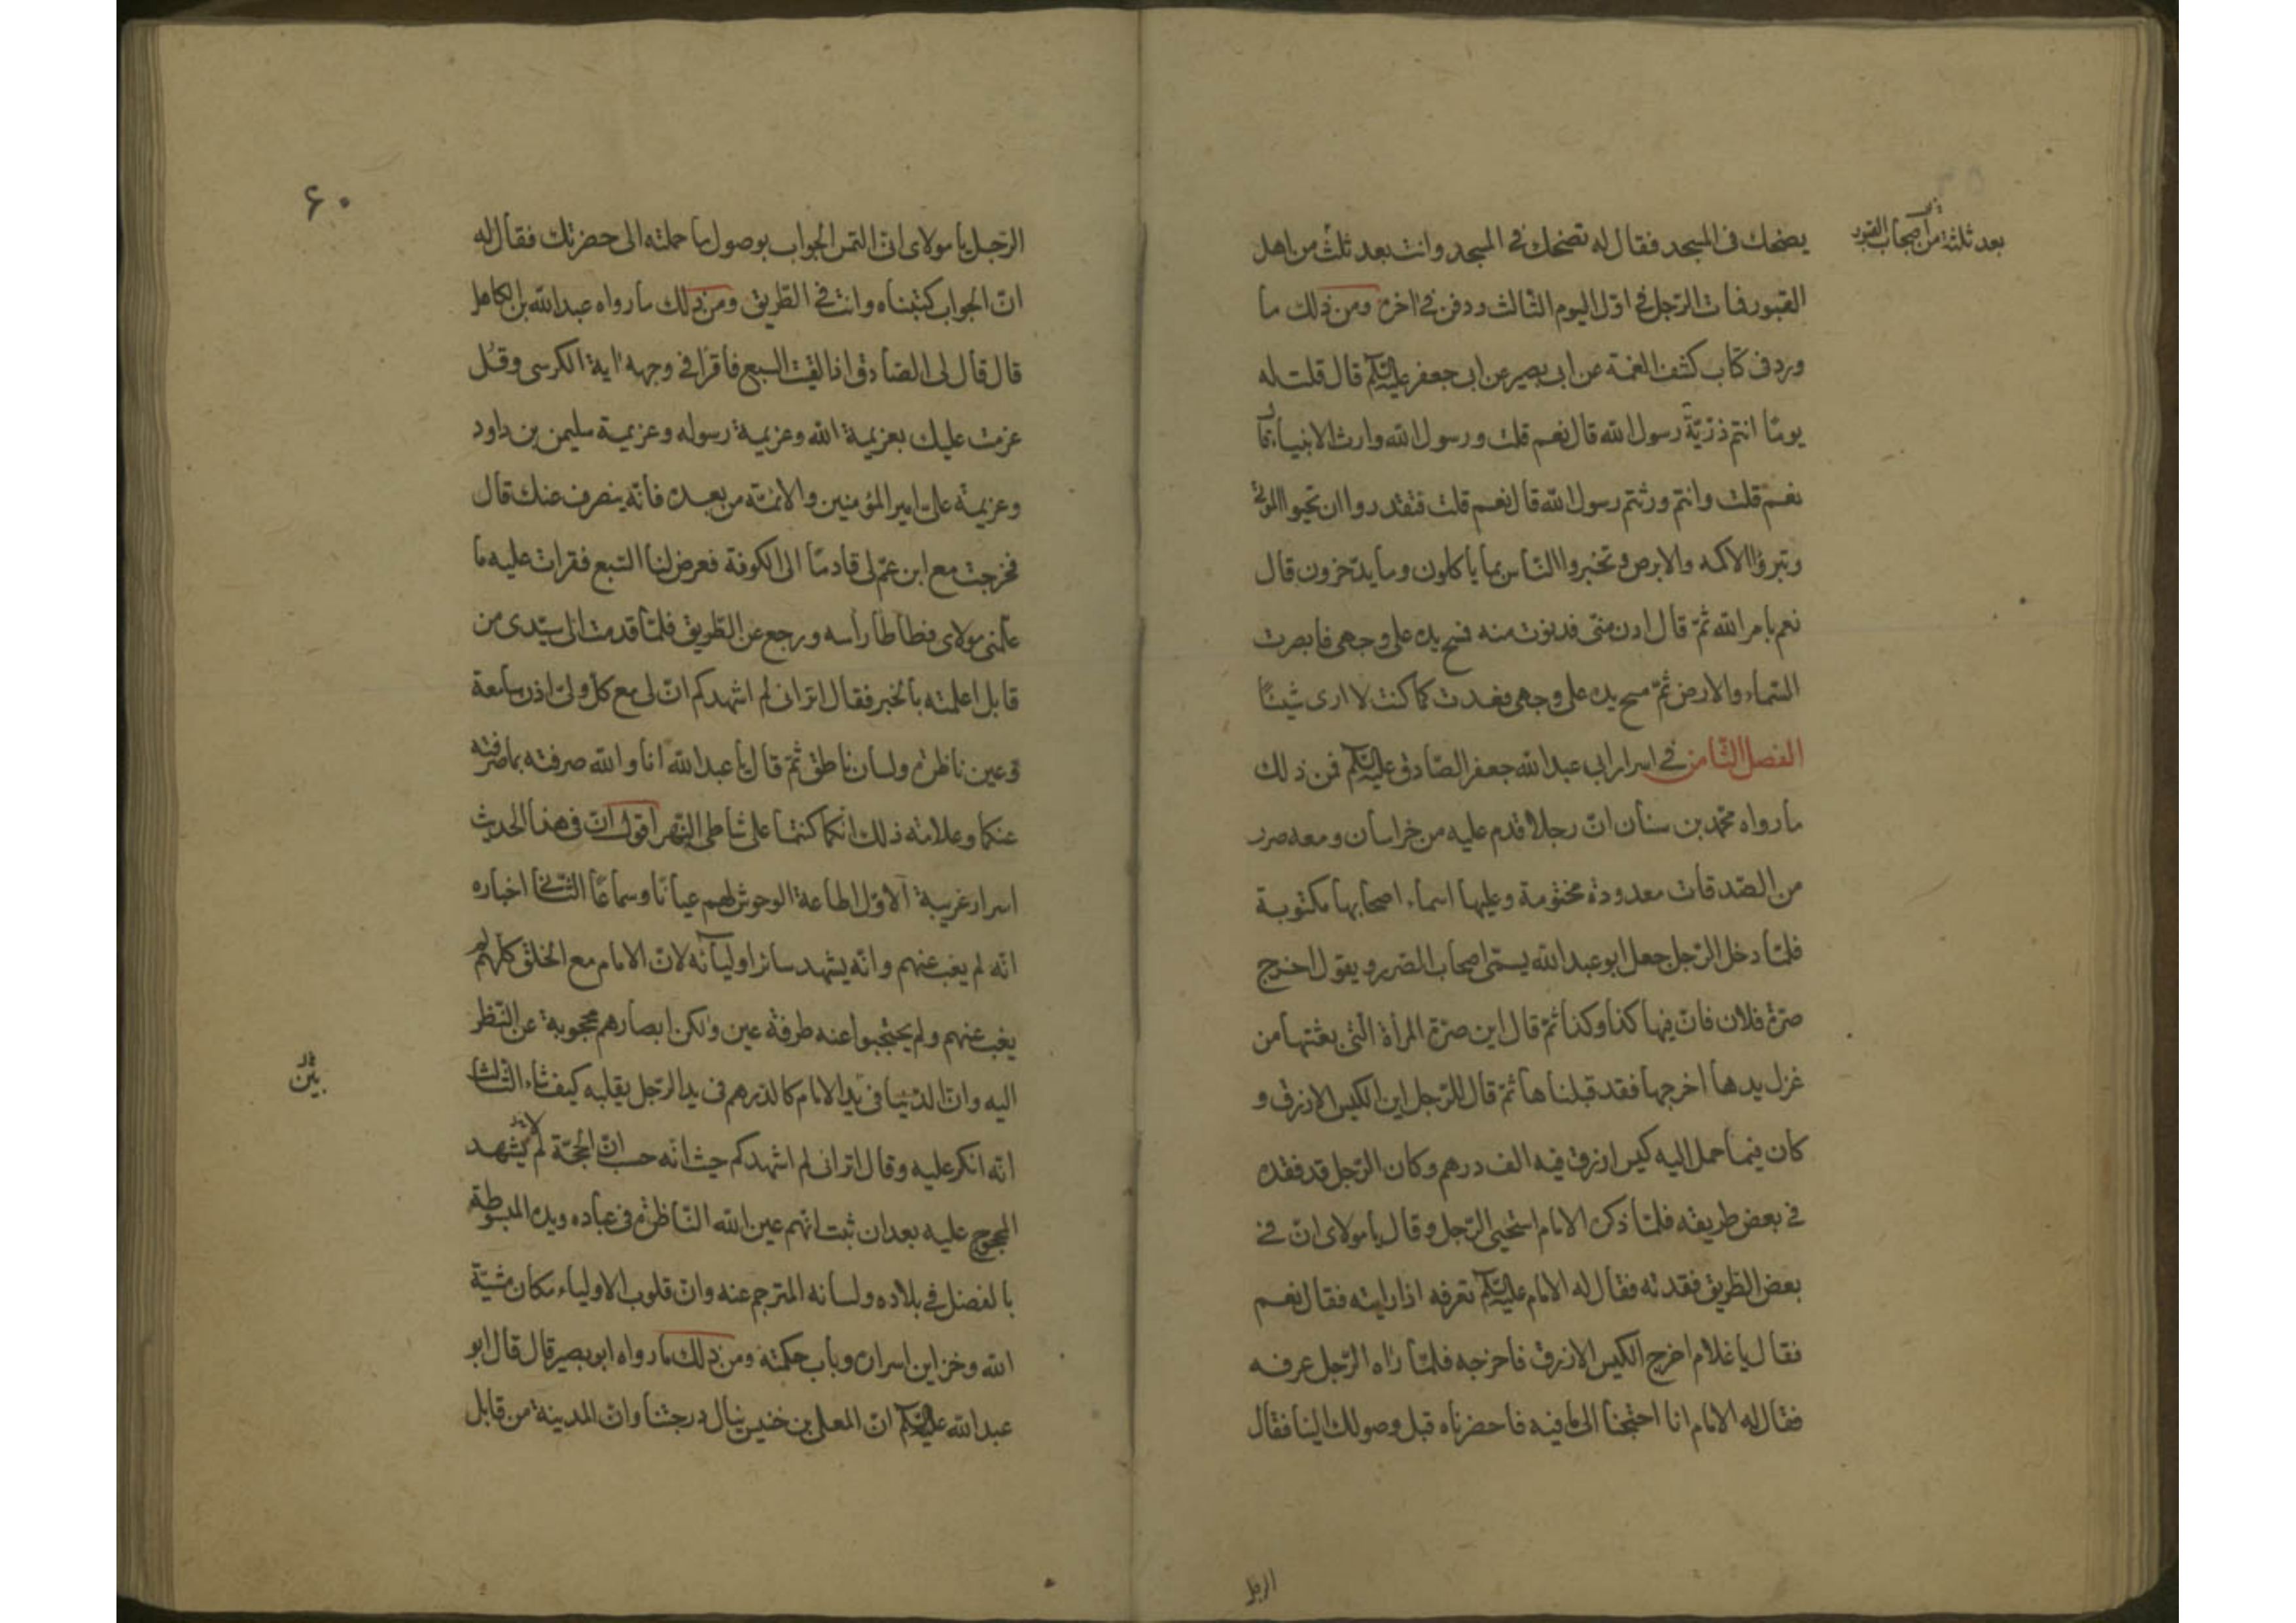 بعد ثلثة من أصحاب القبور
يضحك فى المسجد فقال له تضحك فى المسجد وانت بعد ثلث من اهل
القبور فمات الرّجل فى اوّل اليوم الثالث ودفن فى اخره ومن ذلك ما
ورد فى كتاب كشف الغمّة عن ابى بصير عن ابى جعفر عليه السّلم قال قلت له
يومًا انتم ذرّيّة رسول الله قال نعم قلت ورسول الله وارث الانبياء قال
نعم قلت وانتم ورثتم رسول الله قال نعم قلت فتقدروا ان تحيوا الموتى
وتبرؤا الاكمه والابرص وتخبروا النّاس بما ياكلون وما يدّخرون قال
نعم بامر الله ثمّ قال ادن منّى فدنوت منه فمسح يده على وجهى فابصرت
السّماء والارض ثمّ مسح يده على وجهى فعدت كما كنت لا ارى شيئًا
الفصل الثّامن فى اسرار ابى عبد الله جعفر الصّادق عليه السّلم فمن ذلك
ما رواه محمّد بن سنان انّ رجلا قدم عليه من خراسان ومعه صرر
من الصّدقات معدودة مختومة وعليها اسماء اصحابها مكتوبة
فلمّا دخل الرّجل جعل ابو عبد الله يسمّى اصحاب الصّرر ويقول اخرج
صرّة فلان فانّ فيها كذا وكذا ثمّ قال اين صرّة المرأة الّتى بعثتها من
غزل يدها اخرجها فقد قبلناها ثمّ قال للرّجل اين الكيس الازرق و
كان فيما حمل اليه كيس ازرق فيه الف درهم وكان الرّجل قد فقده
فى بعض طريقه فلمّا ذكره الامام استحيى الرّجل وقال يا مولاى انّ فى
بعض الطّريق فقدته فقال له الامام عليه السّلم تعرفه اذا رايته فقال نعم
فقال يا غلام اخرج الكيس الازرق فاخرجه فلمّا راه الرّجل عرفه
فقال له الامام انا احتجنا الى ما فيه فاحضرناه قبل وصولك الينا فقال
الرجل
۶۰
الرّجل يا مولاى انّى التمس الجواب بوصول ما حملته الى حضرتك فقال له
انّ الجواب كتبناه وانت فى الطّريق ومن ذلك ما رواه عبد الله بن الكامل
قال قال لى الصّادق اذا لقيت السبع فاقرا فى وجهه اية الكرسى وقل
عزمت عليك بعزيمة الله وعزيمة رسوله وعزيمة سليمن بن داود
وعزيمة علىّ امير المؤمنين والائمّة من بعده فانّه ينصرف عنك قال
فخرجت مع ابن عمّ لى قادمًا الى الكوفة فعرض لنا السّبع فقرات عليه ما
علّمنى مولاى فطاطا رأسه ورجع عن الطّريق فلمّا قدمت الى سيّدى من
قابل اعلمته بالخبر فقال اترانى لم اشهدكم انّ لى مع كلّ ولىّ اذن سامعة
وعين ناظرة ولسان ناطق ثمّ قال يا عبد الله انا والله صرفته بما صرفته
عنكما وعلامة ذلك انّكما كنتما على شاطى النّهر اقول انّ فى هذا الحديث
اسرار غريبة الاوّل اطاعة الوحوش لهم عيانًا وسماعًا الثّانى اخباره
انّه لم يغب عنهم وانّه يشهد سائر اوليائه لانّ الامام مع الخلق كلّهم لم
يغب عنهم ولم يحتجبوا عنه طرفة عين ولكن ابصارهم محجوبة عن النّظر
اليه وانّ الدّنيا فى يد الامام كالدّرهم فى يد الرّجل يقلبه كيف شاء الثّالث
انّه انكر عليه وقال اترانى لم اشهدكم حيث انّه حسب انّ الحجّة لم يشهد
المحجوج عليه بعد ان ثبت انّهم عين الله النّاظرة فى عباده ويده المبسوطة
بالفضل فى بلاده ولسانه المترجم عنه وانّ قلوب الاولياء مكان مشيّة
الله وخزاين اسراره وباب حكمته ومن ذلك ما رواه ابو بصير قال قال ابو
عبد الله عليه السّلم انّ المعلى بن خنيس ينال درجتنا وانّ المدينة من قابل